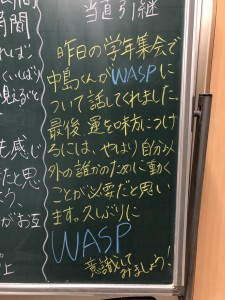 当直引継
昨日の学年集会で
中島くんがWASPに
ついて話してくれました。
最後、運を味方につけ
るには、やはり自分以
外の誰かのために動く
ことが必要だと思い
ます。久しぶりに
WASP
意識して
みましょう!